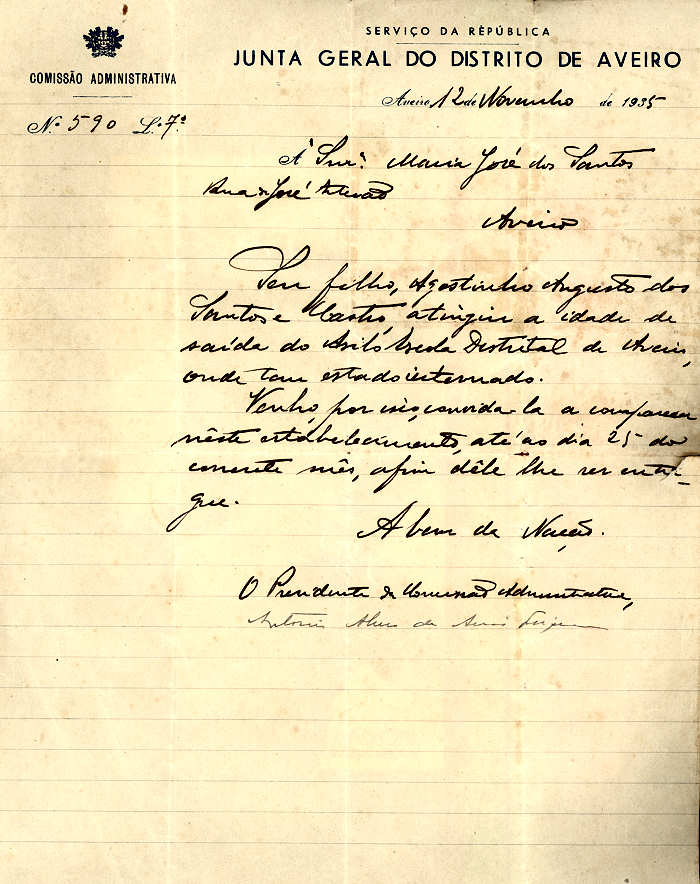 SERVIÇO DA RÉPÚBLICA
JUNTA GERAL DO DISTRITO DE AVEIRO
COMISSÃO ADMINISTRATIVA
Aveiro, 12 de Novembro de 1935
N.º 590 L.º 7.º
Á Snr.ª Maria José dos Santos
Rua José Estevão
Aveiro
Seu filho, Agostinho Augusto dos
Santos e Castro, atingiu a idade de
saída do Asilo Escola Distrital de Aveiro,
onde tem estado internado.
Venho, por isso, convida-la a comparecer
nêste estabelecimento, até ao dia 25 do
corrente mês, afim dêle lhe ser entre-
gue.
A bem da Nação.
O Presidente da Comissão Administrativa,
António